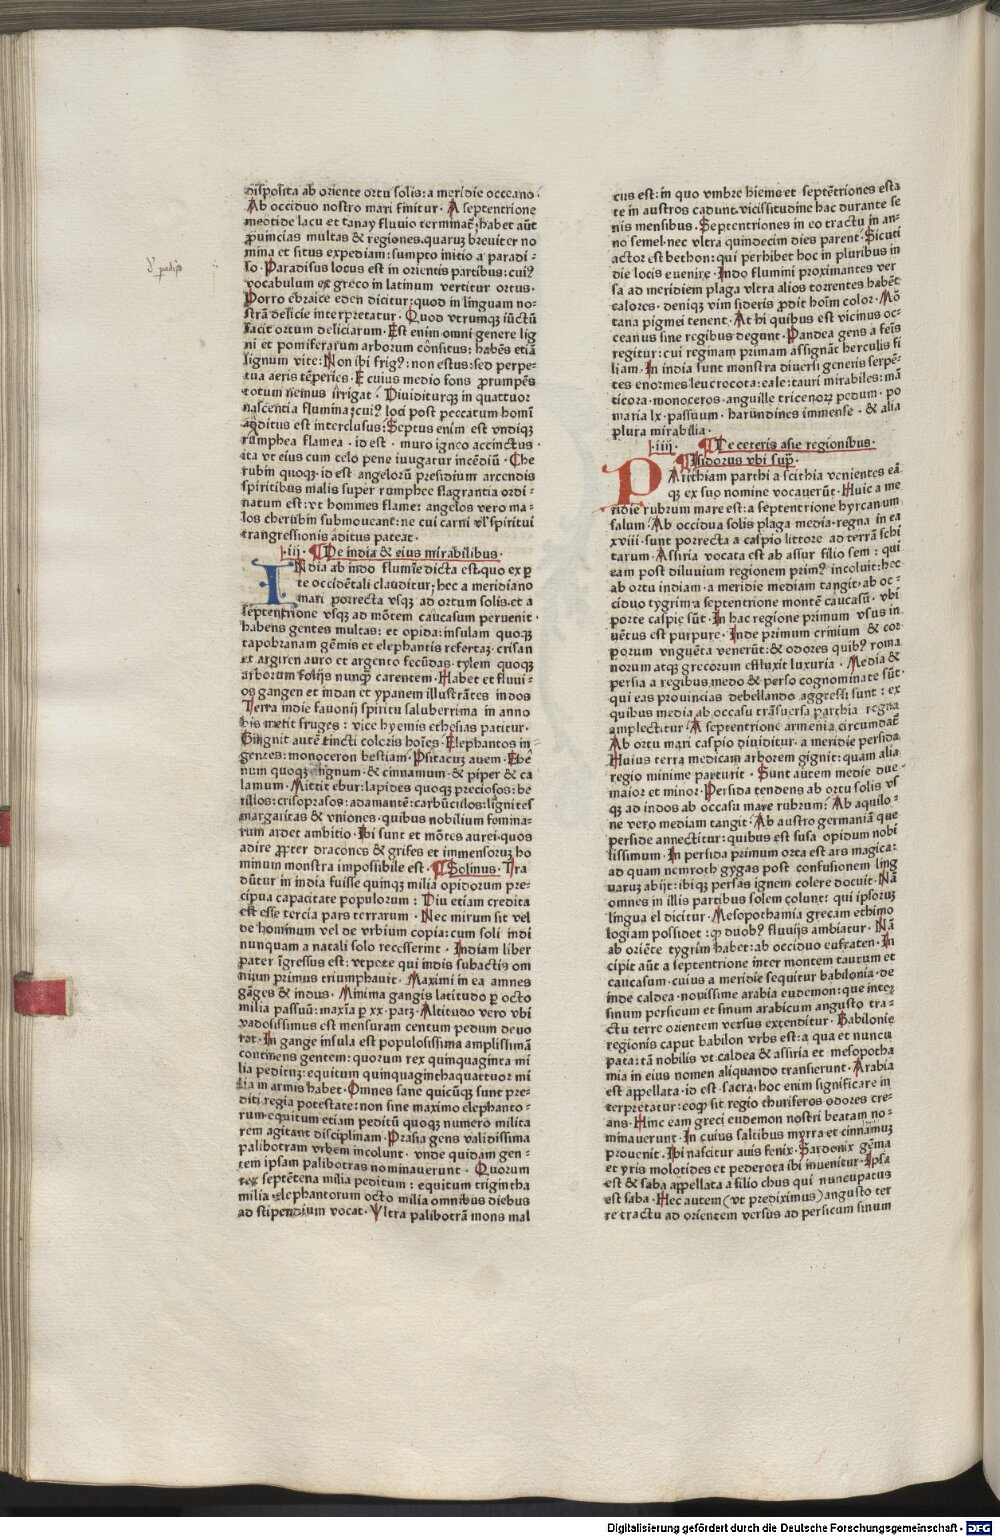 disposita ab oriente ortu solis: a meridie occeano.
Ab occiduo nostro mari finitur. A septentrione
meotide lacu et tanay fluvio terminat᷑; habet aūt
ꝓuincias multas & regiones. quaruꝫ breuiter no
mina et situs expediam: sumpto initio a paradi⸗
so. Paradisus locus est in orientis partibus: cuiꝰ
vocabulum ex greco in latinum vertitur ortus.
Porro ebraice eden dicitur; quod in linguam no⸗
strā delicie interpretatur. Quod vtrumqꝫ iūctū
facit ortum deliciarum. Est enim omni genere lig
ni et pomiferarum arborum cōnsitus: habēs etiā
lignum vite: Non ibi frigꝰ: non estus: sed perpe⸗
tua aeris tēperies. E cuius medio fons prorumpēs
totum nemus irrigat. Diuiditurqꝫ in quattuor
nascentia flumina; cuiꝰ loci post peccatum homī
aditus est interclusus: Septus enim est vndiqꝫ
rumphea flamea. id est. muro igneo accinctus.
ita vt eius cum celo pene iuugatur incēdiū. Che
rubin quoqꝫ. id est. angelorū presidium arcendis
spiritibus malis super rumphee flagrantia ordi⸗
natum est: vt homines flame: angelos vero ma⸗
los cherubin submoueant: ne cui carni vl spiritui
trangressionis aditus pateat.
.iij. De india & eius mirabilibus.
INdia ab indo flumīe dicta est. quo ex ꝑ
te occidētali clauditur; hec a meridiano
mari porrecta vsqꝫ ad ortum solis. et a
septentrione vsqꝫ ad mōtem caucasum peruenit.
habens gentes multas: et opida: insulam quoqꝫ
tapobranam gēmis et elephantis refertaꝫ. crisan
et argiren auro et argento fecūdas. tylem quoqꝫ
arborum folijs nunqꝫ carentem. Habet et fluui⸗
os gangen et indan et ypanem illustrātes indos
Terra indie fauonij spiritu saluberrima in anno
bis metit fruges: vice hyemis ethesias patitur.
Gignit autē tincti coloris hoīes. Elephantos in⸗
gentes: monoceron bestiam. Psitacuꝫ auem. Ebe
num quoqꝫ lignum. & cinnamum. & piper & ca
lamum. Mittit ebur: lapides quoqꝫ preciosos: be
rillos: crisoprasos: adamantē: carbūculos: lignites
margaritas & vniones. quibus nobilium femina⸗
rum ardet ambitio. Ibi sunt et mōtes aurei. quos
adire ꝓpter dracones & grifes et immensoruꝫ ho
minum monstra impossibile est. Solinus. Tra
dūtur in india fuisse quinqꝫ milia opidorum pre⸗
cipua capacitate populorum: Diu etiam credita
est esse tercia pars terrarum. Nec mirum sit vel
de hominum vel de vrbium copia: cum soli indi
nunquam a natali solo recesserint. Indiam liber
pater ingressus est: vtpote qui indis subactis om
nium primus triumphauit. Maximi in ea amnes
gāges & indus. Minima gangis latitudo ꝑ octo
milia passuū: maxīa ꝑ xx. patꝫ. Altitudo vero vbi
vadosissimus est mensuram centum pedum deuo
rat. In gange insula est populosissima amplissimā
continens gentem: quorum rex quinquaginta mi
lia pedituꝫ: equitum quinquagintaquattuor mi
lia in armis habet. Omnes sane quicūqꝫ sunt pre⸗
diti regia potestate: non sine maximo elephanto⸗
rum equitum etiam peditū quoqꝫ numero milita
rem agitant disciplinam. Prasia gens validissima
palibotram vrbem incolunt. vnde quidam gen⸗
tem ipsam palibotras nominauerunt. Quorum
rex septētena milia peditum: equitum trigintha
milia elephantorum octo milia omnibus diebus
ad stipendium vocat. Vltra palibotrā mons mal
cus est: in quo vmbre hieme et septētriones esta
te in austros cadunt. vicissitudine hac durante se
nis mensibus. Septentriones in eo tractu in an⸗
no semel. nec vltra quindecim dies parent. Sicuti
actor est bethon: qui perhibet hoc in pluribus in
die locis euenire. Indo flumini proximantes ver
sa ad meridiem plaga vltra alios torrentes habēt
calores. deniqꝫ vim sideris ꝓdit hoīm color. Mō
tana pigmei tenent. At hi quibus est vicinus oc⸗
ceanus sine regibus degunt. Pandea gens a feīs
regitur: cui reginam primam assignāt herculis fi
liam. In india sunt monstra diuersi generis serpē⸗
tes enormes. leucrocota: eale: tauri mirabiles: mā
titora. monoceros. anguille tricenoꝝ pedum. po
maria lx. passuum. harundines immense. & alia
plura mirabilia.
.iiij. De ceteris asie regionibus.
Isidorus vbi supͣ.
PArthiam parthi a scithia venientes eā
qꝫ ex suo nomine vocauerūt. Huic a me
ridie rubrum mare est: a septentrione hyrcanum
salum. Ab occidua solis plaga media. regna in ea
xviij. sunt porrecta a caspio littore ad terrā schi
tarum. Assiria vocata est ab assur filio sem: qui
eam post diluvium regionem primꝰ incoluit: hec
ab ortu indiam. a meridie mediam tangit. ab oc⸗
ciduo tygrim a septentrione montē caucasū. vbi
porte caspie sūt. In hac regione primum vsus in
uētus est purpure. Inde primum crinium & cor
porum vnguēta venerūt: & odores quibꝰ roma
norum atqꝫ grecorum effluxit luxuria. Media &
persia a regibus medo & perso cognominate sūt.
qui eas prouincias debellando aggressi sunt: ex
quibus media ab occasu trāsuersa parthia regna
amplectitur. A septentrione armenia circumdat᷑
Ab ortu mari caspio diuiditur. a meridie persida
Huius terra medicam arborem gignit: quam alia
regio minime parturit. Sunt autem medie due.
maior et minor. Persida tendens ab ortu solis vs
qꝫ ad indos ab occasu mare rubrum: Ab aquilo⸗
ne vero mediam tangit. Ab austro germaniā que
perside annectitur: quibus est susa opidum nobi
lissimum. In persida primum orta est ars magica:
ad quam nemroth gygas post confusionem ling
uaruꝫ abijt: ibiqꝫ persas ignem colere docuit. Nā
omnes in illis partibus solem colunt: qui ipsoruꝫ
lingua el dicitur. Mesopothamia grecam ethimo
logiam possidet: ꝙ duobꝰ fluuijs ambiatur. Nā
ab oriēte tygrim habet: ab occiduo eufraten. In
cipit aūt a septentrione inter montem taurum et
caucasum. cuius a meridie sequitur babilonia. de
inde caldea. nouissime arabia eudemon: que inter
sinum persicum et sinum arabicum angusto tra⸗
ctu terre orientem versus extenditur. Babilonie
regionis caput babilon vrbs est: a qua et nuncu
pata: tā nobilis vt caldea & assiria et mesopotha
mia in eius nomen aliquando transierunt. Arabia
est appellata. id est. sacra. hoc enim significare in
terpretatur: eoqꝫ sit regio thuriferos odores cre⸗
ans. Hinc eam greci eudemon nostri beatam no⸗
minauerunt. In cuius saltibus myrra et cinnamuꝫ
prouenit. Ibi nascitur auis fenix. Sardonix gēma
et yris molotides et pederota ibi inuenitur. Ipsa
est & saba appellata a filio chus qui nuncupatus
est saba. Hec autem (vt prediximus) angusto ter
re tractu ad orientem versus ad persicum sinum
Digitalisierung gefördert durch die Deutsche Forschungsgemeinschaft - DFG